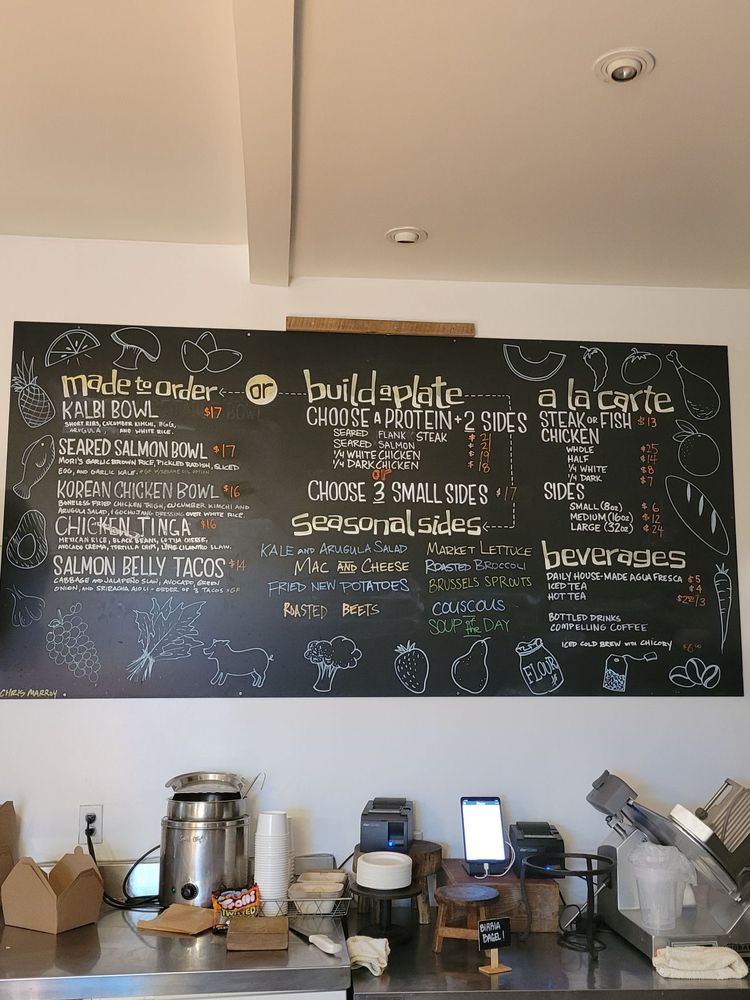 made to order
KALBI BOWL $17
SHORT RIBS, CUCUMBER KIMCHI, EGG,
ARUGULA, AND WHITE RICE
SEARED SALMON BOWL $17
MORI'S GARLIC BROWN RICE, PICKLED RADISH, SLICED
EGG, AND GARLIC KALE.
KOREAN CHICKEN BOWL $16
BONELESS FRIED CHICKEN THIGH, CUCUMBER KIMCHI AND
ARUGULA SALAD, GOCHUJANG DRESSING OVER WHITE RICE.
CHICKEN TINGA $16
MEXICAN RICE, BLACK BEAN, COTIJA CHEESE,
AVOCADO CREMA, TORTILLA CHIPS, LIME CILANTRO SLAW.
SALMON BELLY TACOS $14
CABBAGE AND JALAPEÑO SLAW, AVOCADO, GREEN
ONION, AND SRIRACHA AIOLI - ORDER OF 3 TACOS *GF
or
build a plate
CHOOSE A PROTEIN + 2 SIDES
SEARED FLANK STEAK $21
SEARED SALMON $21
1/4 WHITE CHICKEN $19
1/4 DARK CHICKEN $18
or
CHOOSE 3 SMALL SIDES $17
seasonal sides
KALE AND ARUGULA SALAD
MAC AND CHEESE
FRIED NEW POTATOES
ROASTED BEETS
MARKET LETTUCE
ROASTED BROCCOLI
BRUSSELS SPROUTS
COUSCOUS
SOUP of the DAY
a la carte
STEAK OR FISH $13
CHICKEN
WHOLE $25
HALF $14
1/4 WHITE $8
1/4 DARK $7
SIDES
SMALL (8oz) $6
MEDIUM (16oz) $12
LARGE (32oz) $24
beverages
DAILY HOUSE-MADE AGUA FRESCA $5
ICED TEA $4
HOT TEA
BOTTLED DRINKS
COMPELLING COFFEE
ICED COLD BREW WITH CHICORY $6.00
FLOUR
CHRIS MARROY
TWISTED
BIRRIA
BAGEL!